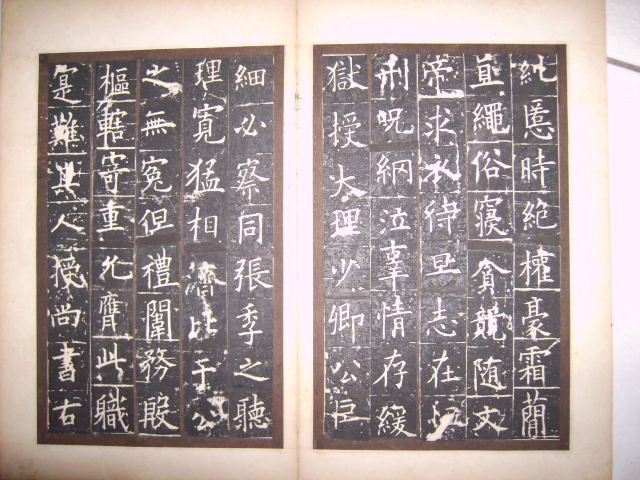 糺慝時絕權豪霜蕳
直繩俗寢貪競随文
帝求衣待旦志在恤
刑呪網泣辜情存緩
獄授大理少卿公巨
細必察同張季之聽
理寬猛相濟比于公
之無冤但禮闈務殷
樞轄寄重允膺此職
寔難其人授尚書右